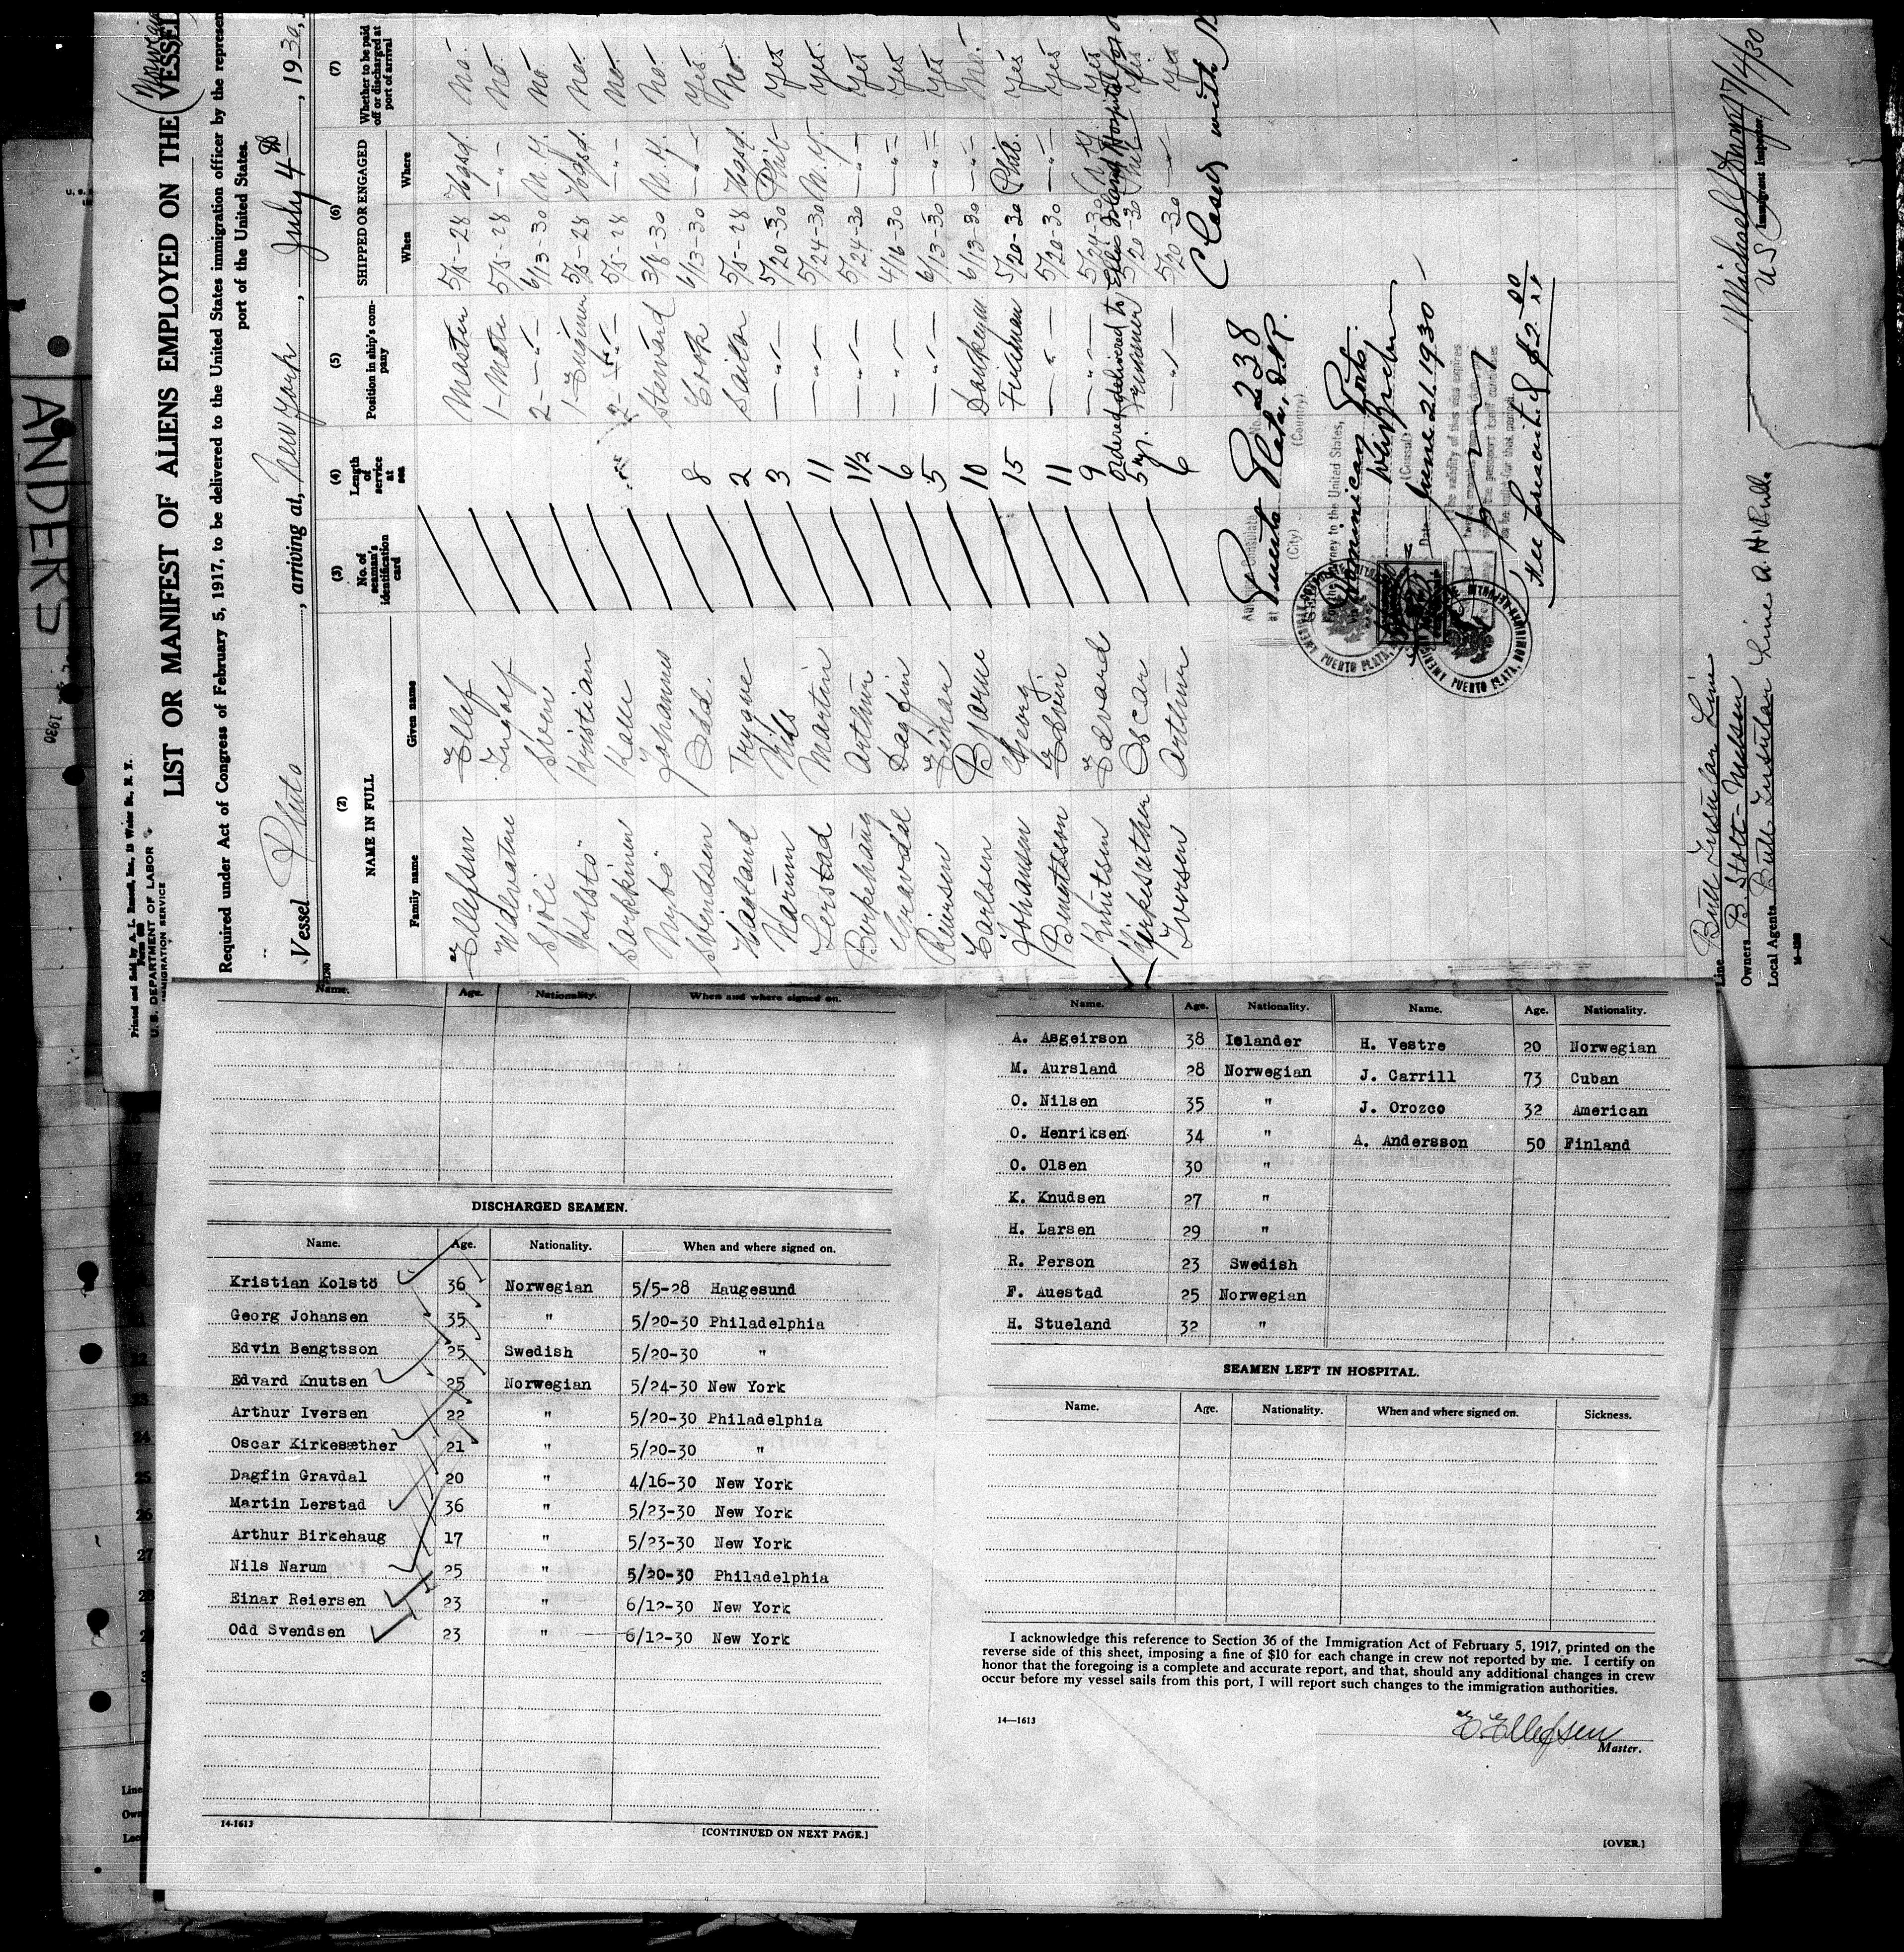 ANDERS
1930
Printed and Sold by A. L. Russell, Inc., 12 Water St., N. Y.
U. S. DEPARTMENT OF LABOR
IMMIGRATION SERVICE
LIST OR MANIFEST OF ALIENS EMPLOYED ON THE VESSEL
Required under Act of Congress of February 5, 1917, to be delivered to the United States immigration officer by the represen
port of the United States.
Vessel Pluto, arriving at, New York, July 4th, 1930,
(2) (3) (4) (5) (6) (7)
NAME IN FULL
No. of seaman's identification card
Length of service at sea
Position in ship's company
SHIPPED OR ENGAGED
Whether to be paid off or discharged at port of arrival
Family name Given name When Where
Ellefsen Ellef Master 5/5-28 Hgsd. No.
Ingolf 1-Mate 5/5-28 -"- No.
Sjöli Sven 2 -"- 6/13-30 N.Y. No.
Kolstö Kristian 1-Engineer 5/5-28 Hgsd. No.
Sarkkinen 2 -"- 5/5-28 -"- No.
Nybö Johannes Steward 3/8-30 N.Y. No.
Svendsen Odd. 8 Cook 6/13-30 -"- Yes
Trygve 2 Sailor 5/5-28 Hgsd. No.
Narum Nils 3 -"- 5/20-30 Phil. Yes
Lerstad Martin 11 -"- 5/24-30 N.Y. Yes.
Birkehaug Arthur 1½ -"- 5/24-30 -"- Yes
Gravdal Dagfin 6 -"- 4/16-30 -"- Yes
Reiersen Einar 5 -"- 6/13-30 -"- Yes
Carlsen Bjarne 10 Donkeym. 6/13-30 -"- No.
Johansen Georg. 15 Fireman 5/20-30 Phil. Yes
Bengtsson Edvin 11 -"- 5/20-30 -"- Yes
Knutsen Edvard 9 -"- 5/24-30 N.Y. Yes
Ordered delivered to Ellis Island Hospital for
Kirkesæther Oscar 5 Trimmer 5/20-30 Phil. Yes.
Iversen Arthur 6 -"- 5/20-30 -"- Yes
Closed with
No. 238
at Puerto Plata, D.R.
(City) (Country)
For the journey to the United States,
Dominican Ports.
(Consul)
Date June 21. 1930
The validity of this visa expires
PUERTO PLATA,
Fee
$2.00
Line Bull Insular Line
Owners B. Stolt-Nielsen
Local Agents Bull Insular Line A.H. Bull
Michael
7/4/30
US Immigrant Inspector.
Name. Age. Nationality. When and where signed on.
DISCHARGED SEAMEN.
Name. Age. Nationality. When and where signed on.
Kristian Kolstö 36 Norwegian 5/5-28 Haugesund
Georg Johansen 35 " 5/20-30 Philadelphia
Edvin Bengtsson 25 Swedish 5/20-30 "
Edvard Knutsen 25 Norwegian 5/24-30 New York
Arthur Iversen 22 " 5/20-30 Philadelphia
Oscar Kirkesæther 21 " 5/20-30 "
Dagfin Gravdal 20 " 4/16-30 New York
Martin Lerstad 36 " 5/23-30 New York
Arthur Birkehaug 17 " 5/23-30 New York
Nils Narum 25 " 5/20-30 Philadelphia
Einar Reiersen 23 " 6/12-30 New York
Odd Svendsen 23 " 6/12-30 New York
14-1613
[CONTINUED ON NEXT PAGE.]
Name. Age. Nationality. Name. Age. Nationality.
A. Asgeirson 38 Islander H. Vestre 20 Norwegian
M. Aursland 28 Norwegian J. Carrill 73 Cuban
O. Nilsen 35 " J. Orozco 32 American
O. Henriksen 34 " A. Andersson 50 Finland
O. Olsen 30 "
K. Knudsen 27 "
H. Larsen 29 "
R. Person 23 Swedish
F. Auestad 25 Norwegian
H. Stueland 32 "
SEAMEN LEFT IN HOSPITAL.
Name. Age. Nationality. When and where signed on. Sickness.
I acknowledge this reference to Section 36 of the Immigration Act of February 5, 1917, printed on the
reverse side of this sheet, imposing a fine of $10 for each change in crew not reported by me. I certify on
honor that the foregoing is a complete and accurate report, and that, should any additional changes in crew
occur before my vessel sails from this port, I will report such changes to the immigration authorities.
14—1613
E. Ellefsen
Master.
[OVER.]